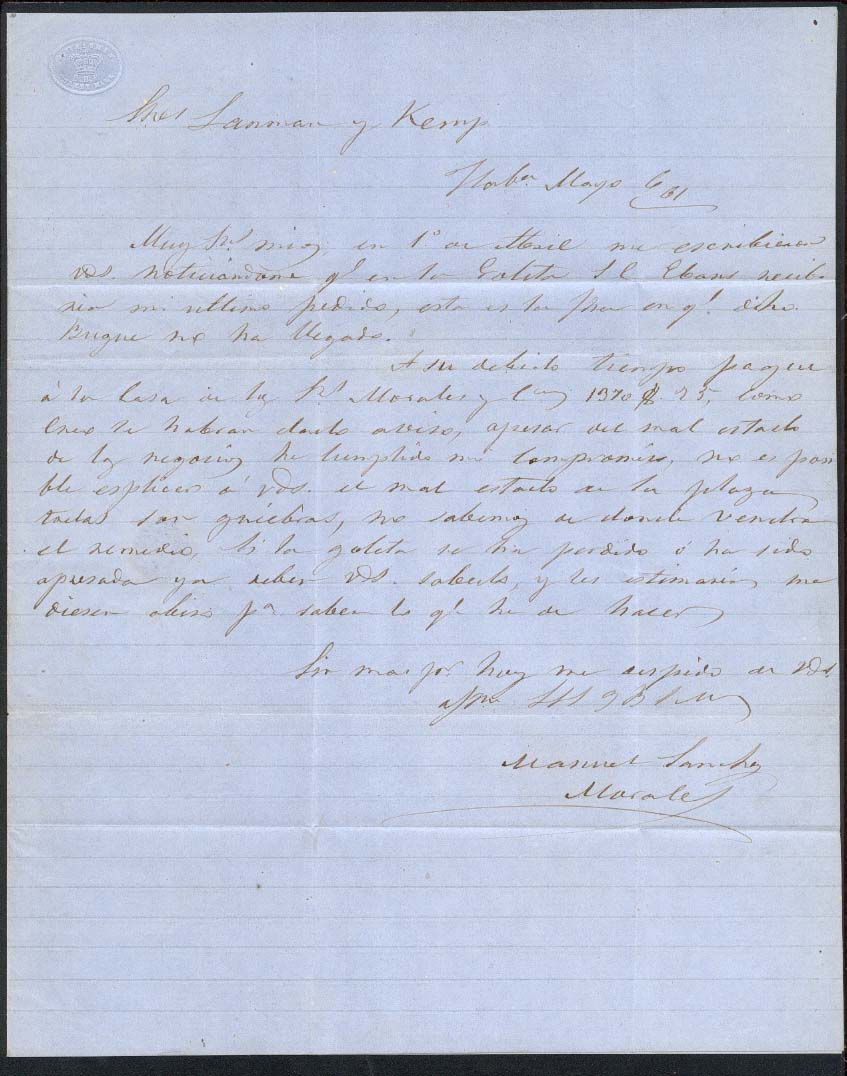 Sres Lanman y Kemp
Habna Mayo 6/61
Muy Sres mios, en 1º de Abril me escribieron
Vds. noticiandome qe en la Goleta S C Ebans recibi-
ria mi ultimo pedido, esta es la fha en qe dcho.
Buque no ha llegado.
A su debido tiempo pague
á la Casa de los Sres Morales y Cia 1370 $ 25, como
creo le habran dado aviso, apesar del mal estado
de los negocios he cumplido mi compromiso, no es posi
ble esplicar á Vds. el mal estado de la plaza
todas son quiebras, no sabemos de donde vendra
el remedio, Si la goleta se ha perdido ó ha sido
apresada ya deben Vds. saberlo, y les estimaria me
diesen abiso pa saber lo qe he de hacer
Sin mas por hoy me despido de Vds.
afmo S S S Q B S M
Manuel Sanchez
Morales